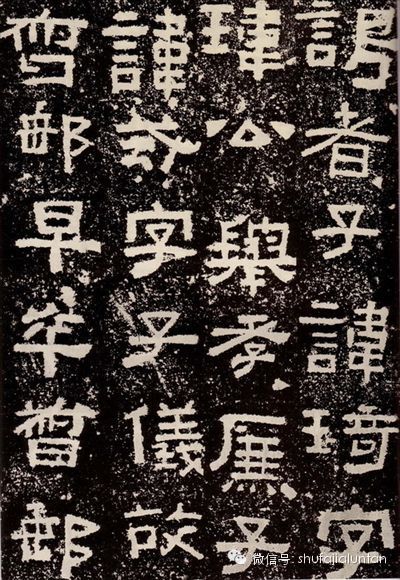 謁者子諱琦字
瑋公舉孝廉子
諱字子儀故
督郵早卒督郵
微信号: shufajialuntan